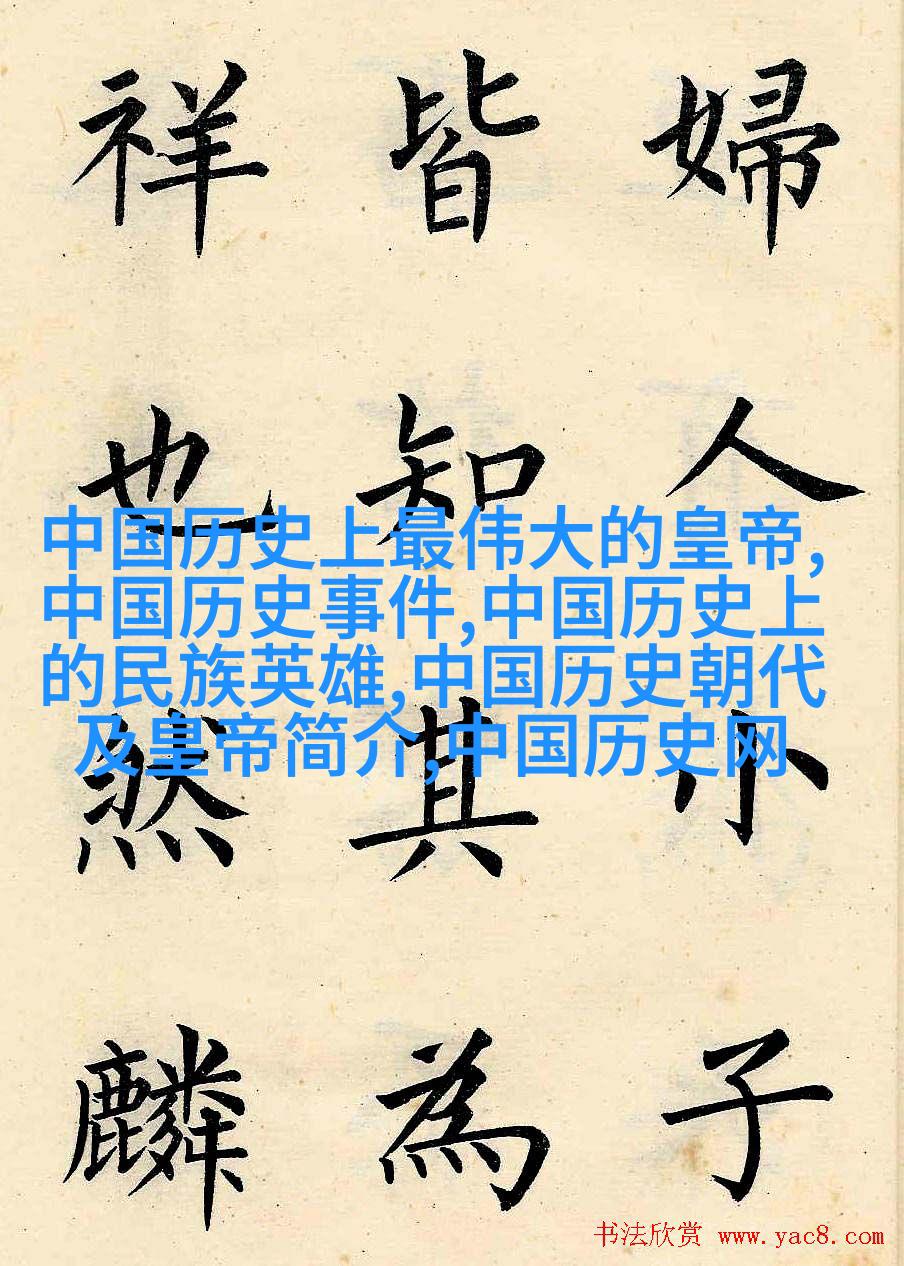 婦人小子
皆知其為
祥也然麟
中国历史上最伟大的皇帝,
中国历史事件,中国历史上
的民族英雄,中国历史朝代
及皇帝简介,中国历史网
书法欣赏 www.yac8.com